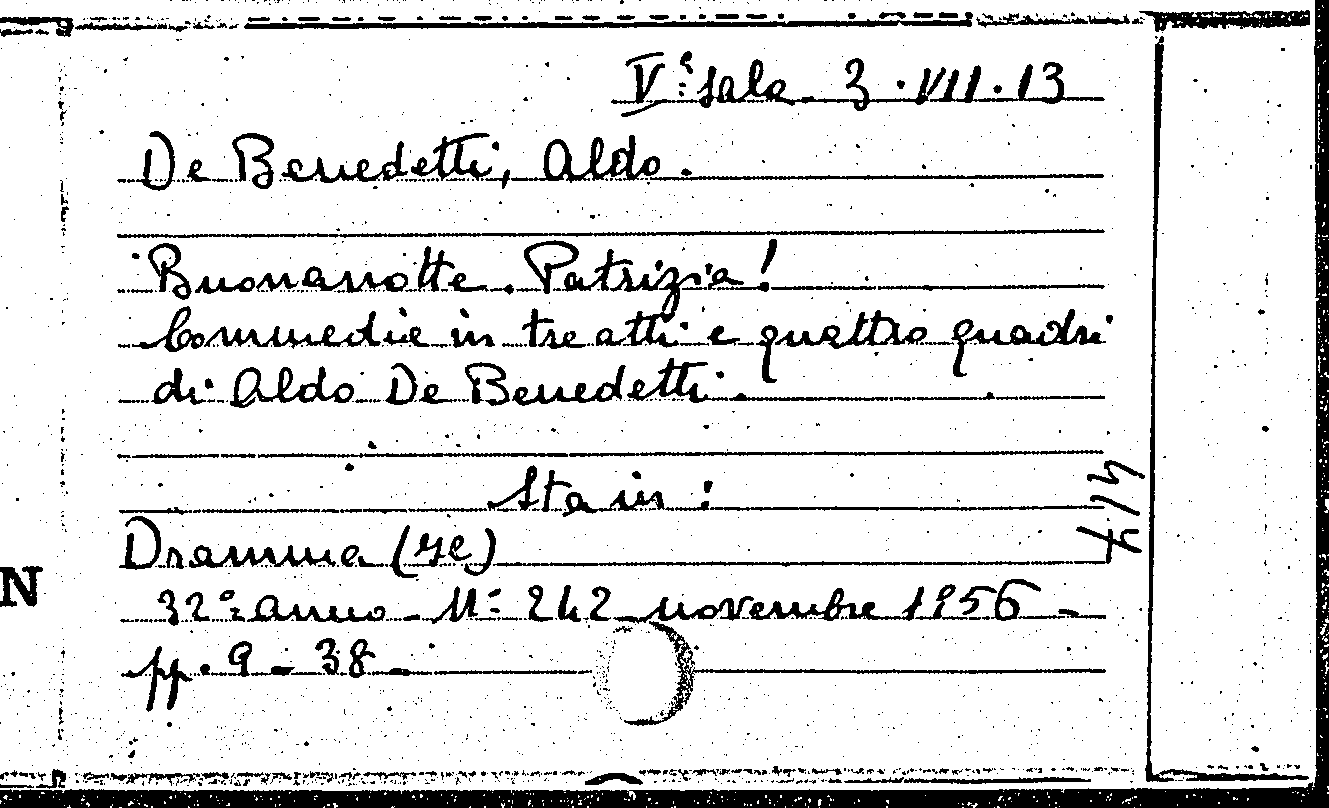 Vª sala. 3.VII.13
De Benedetti, Aldo.
Buonanotte. Patrizia!
Commedie in tre atti e quattro quadri
di Aldo De Benedetti.
Sta in:
Dramma (Il)
32º anno - Nº 242 novembre 1956 -
pp. 9 - 38 -
N